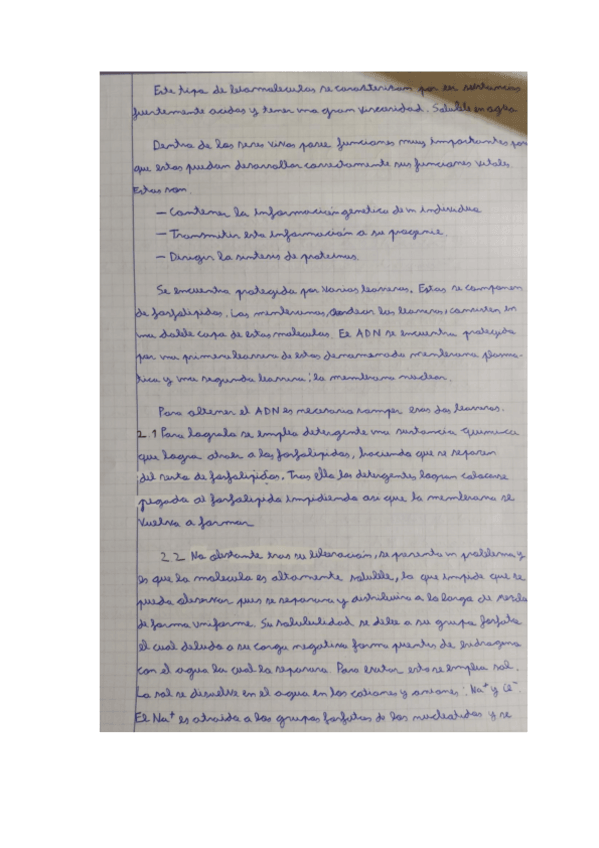 Este tipo de biomoleculas se caracterizan por ser sustancias
fuertemente acidas y tener una gran viscosidad. Soluble en agua
Dentro de los seres vivos posee funciones muy importantes para
que estos puedan desarrollar correctamente sus funciones vitales.
Estas son
- Contener la información genetica de un individuo
- Transmitir esta información a su progenie
- Dirigir la sintesis de proteinas.
Se encuentra protegida por varias barreras. Estas se componen
de fosfolipidos. Las membranas, las barreras, consisten en
una doble capa de estas moleculas. El ADN se encuentra protegido
por una primera barrera de estas denominada membrana plasma-
tica y una segunda barrera; la membrana nuclear.
Para obtener el ADN es necesario romper esas dos barreras.
2.1 Para lograrlo se emplea detergente una sustancia quimica
que logra atraer a los fosfolipidos, haciendo que se separen
del resto de fosfolipidos. Tras ello los detergentes logran colocarse
pegados al fosfolipido impidiendo asi que la membrana se
vuelva a formar
2.2 No obstante tras su liberación, se presenta un problema y
es que la molecula es altamente soluble, lo que impide que se
pueda observar pues se separara y distribuira a lo largo de
de forma uniforme. Su solubulidad se debe a su grupo fosfato
el cual debido a su carga negativa forma puentes de hidrogeno
con el agua la cual la separara. Para evitar esto se emplea sal.
La sal se disuelve en el agua en los cationes y aniones: Na⁺ y Cl⁻.
El Na⁺ es atraido a los grupos fosfatos de los nucleotidos y se